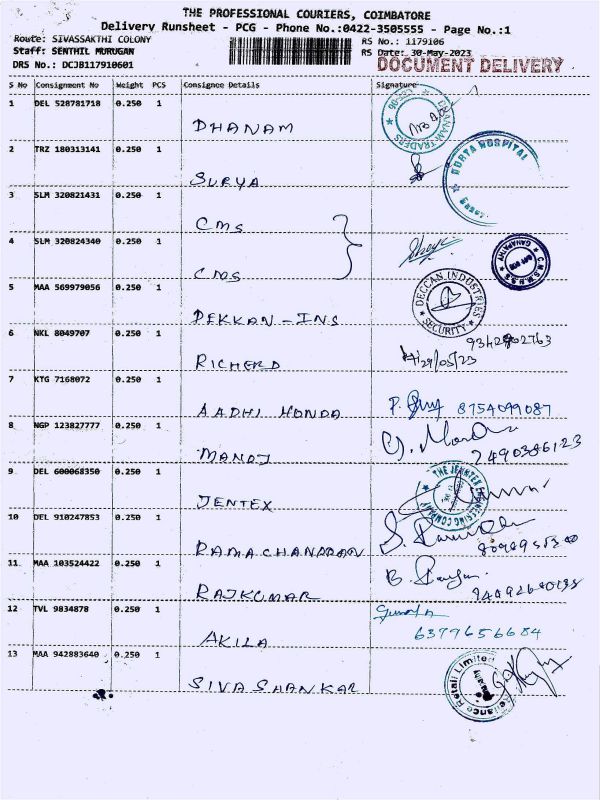 THE PROFESSIONAL COURIERS, COIMBATORE
Delivery Runsheet - PCG - Phone No.:0422-3505555 - Page No.:1
Route: SIVASSAKTHI COLONY
RS No.: 1179106
Staff: SENTHIL MURUGAN
RS Date: 30-May-2023
DRS No.: DCJB117910601
DOCUMENT DELIVERY
S No Consignment No Weight PCS Consignee Details Signature
1 DEL 528781718 0.250 1
DHANAM
DHANAM TRADERS
2 TRZ 180313141 0.250 1
SURYA
HOSPITAL
3 SLM 320821431 0.250 1
CMS
4 SLM 320824340 0.250 1
CMS
5 MAA 569979056 0.250 1
DEKKAN-INS
DECCAN INDUSTRIES
SECURITY
6 NKL 8049707 0.250 1
RICHERD
29/05/23
7 KTG 7168072 0.250 1
AADHI HONDA
8754099087
8 NGP 123827777 0.250 1
MANOJ
9 DEL 600068350 0.250 1
JENTEX
THE JENNTEX ENGINEERING COMPANY
10 DEL 910247853 0.250 1
RAMACHANDRAN
11 MAA 103524422 0.250 1
RAJKUMAR
12 TVL 9834878 0.250 1
AKILA
6377656684
13 MAA 942883640 0.250 1
SIVA SHANKAR
Reliance Retail Limited